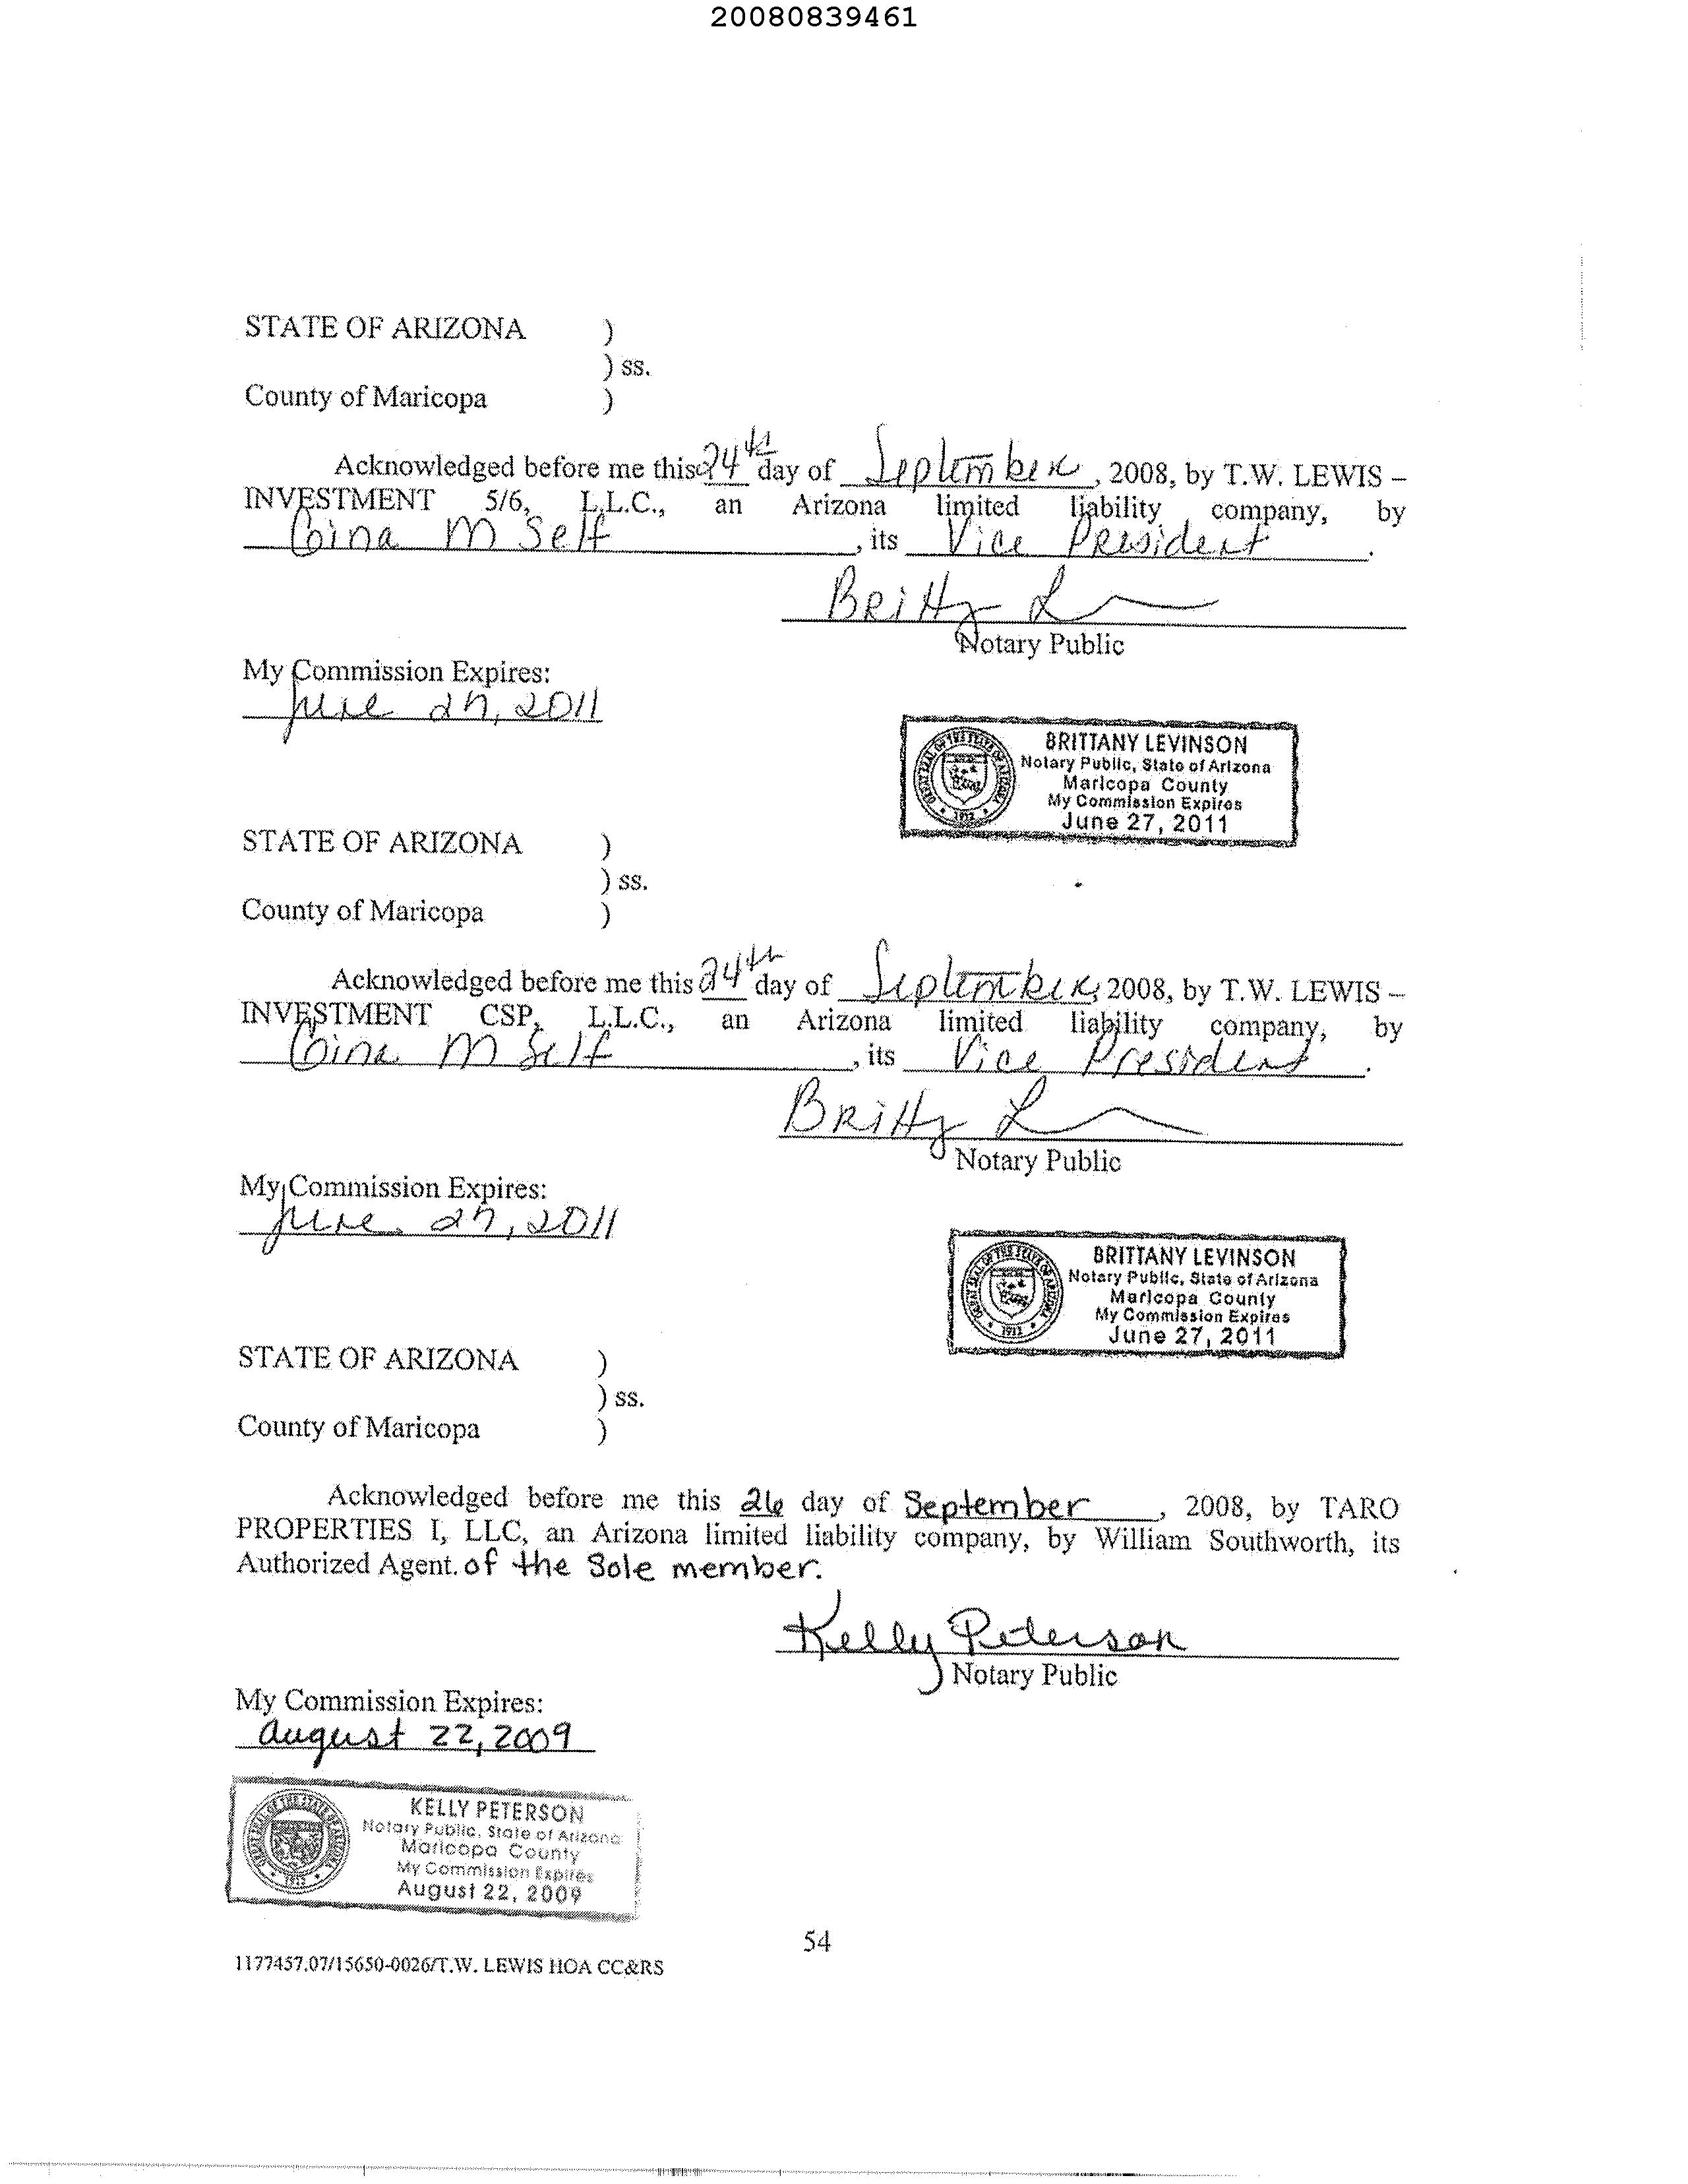 20080839461
STATE OF ARIZONA )
) ss.
County of Maricopa )
Acknowledged before me this 24th day of September, 2008, by T.W. LEWIS –
INVESTMENT 5/6, L.L.C., an Arizona limited liability company, by
Gina M Self, its Vice President.
Notary Public
My Commission Expires:
June 27, 2011
BRITTANY LEVINSON
Notary Public, State of Arizona
Maricopa County
My Commission Expires
June 27, 2011
STATE OF ARIZONA )
) ss.
County of Maricopa )
Acknowledged before me this 24th day of September, 2008, by T.W. LEWIS –
INVESTMENT CSP, L.L.C., an Arizona limited liability company, by
Gina M Self, its Vice President.
Notary Public
My Commission Expires:
June 27, 2011
BRITTANY LEVINSON
Notary Public, State of Arizona
Maricopa County
My Commission Expires
June 27, 2011
STATE OF ARIZONA )
) ss.
County of Maricopa )
Acknowledged before me this 26 day of September, 2008, by TARO
PROPERTIES I, LLC, an Arizona limited liability company, by William Southworth, its
Authorized Agent. of the Sole member.
Kelly Peterson
Notary Public
My Commission Expires:
August 22, 2009
GREAT SEAL OF THE STATE OF ARIZONA
1912
KELLY PETERSON
Notary Public, State of Arizona
Maricopa County
My Commission Expires
August 22, 2009
54
1177457.07/15650-0026/T.W. LEWIS HOA CC&RS